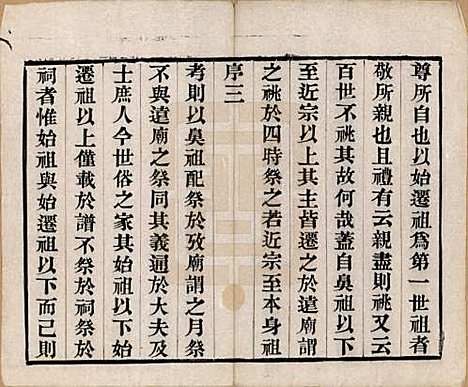 尊所自也以始遷祖爲第一世祖者
敬所親也且禮有云親盡則祧又云
百世不祧其故何哉蓋自鼻祖以下
至近宗以上其主皆遷之於遠廟謂
之祧於四時祭之若近宗至本身祖
序三
考則以鼻祖配祭於攷廟謂之月祭
不與遠廟之祭同其義通於大夫及
士庶人今世俗之家其始祖以下始
遷祖以上僅載於譜不祭於祠祭於
祠者惟始祖與始遷祖以下而已則